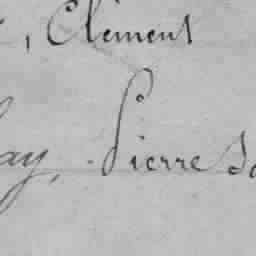 , Clément
ay, Pierre